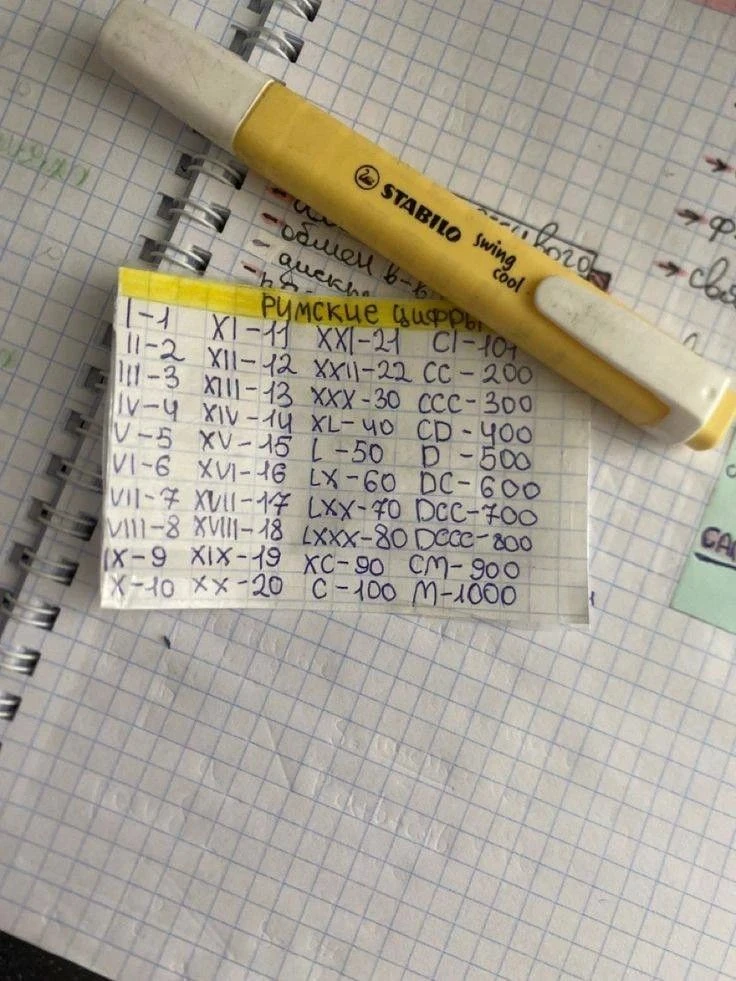 STABILO
swing
cool
обмен в-в
РИМСКИЕ ЦИФРЫ
I-1 XI-11 XXI-21 CI-101
II-2 XII-12 XXII-22 CC-200
III-3 XIII-13 XXX-30 CCC-300
IV-4 XIV-14 XL-40 CD-400
V-5 XV-15 L-50 D-500
VI-6 XVI-16 LX-60 DC-600
VII-7 XVII-17 LXX-70 DCC-700
VIII-8 XVIII-18 LXXX-80 DCCC-800
IX-9 XIX-19 XC-90 CM-900
X-10 XX-20 C-100 M-1000